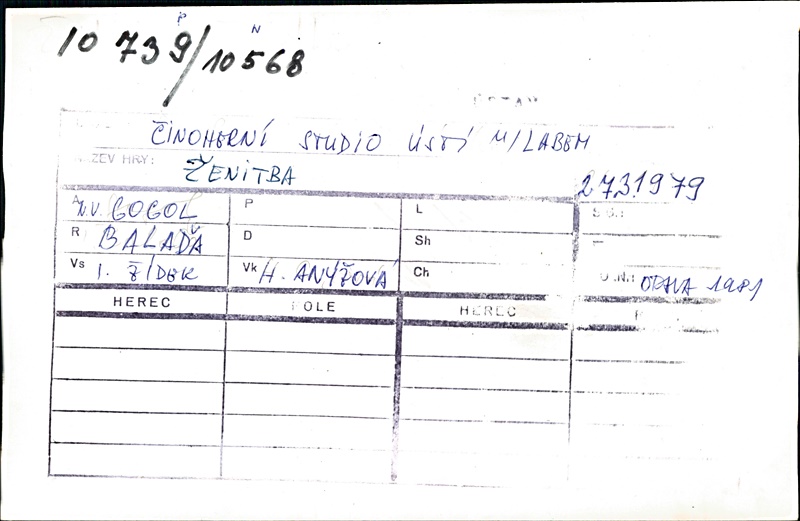 P N
10 739/10568
ČINOHERNÍ STUDIO ÚSTÍ N/LABEM
NÁZEV HRY: ŽENITBA
27.3.1979
A N.V. GOGOL P L
R BALAĎA D Sh
Vs I. ŽÍDEK Vk H. ANÝŽOVÁ Ch OPAVA 1981
HEREC ROLE HEREC